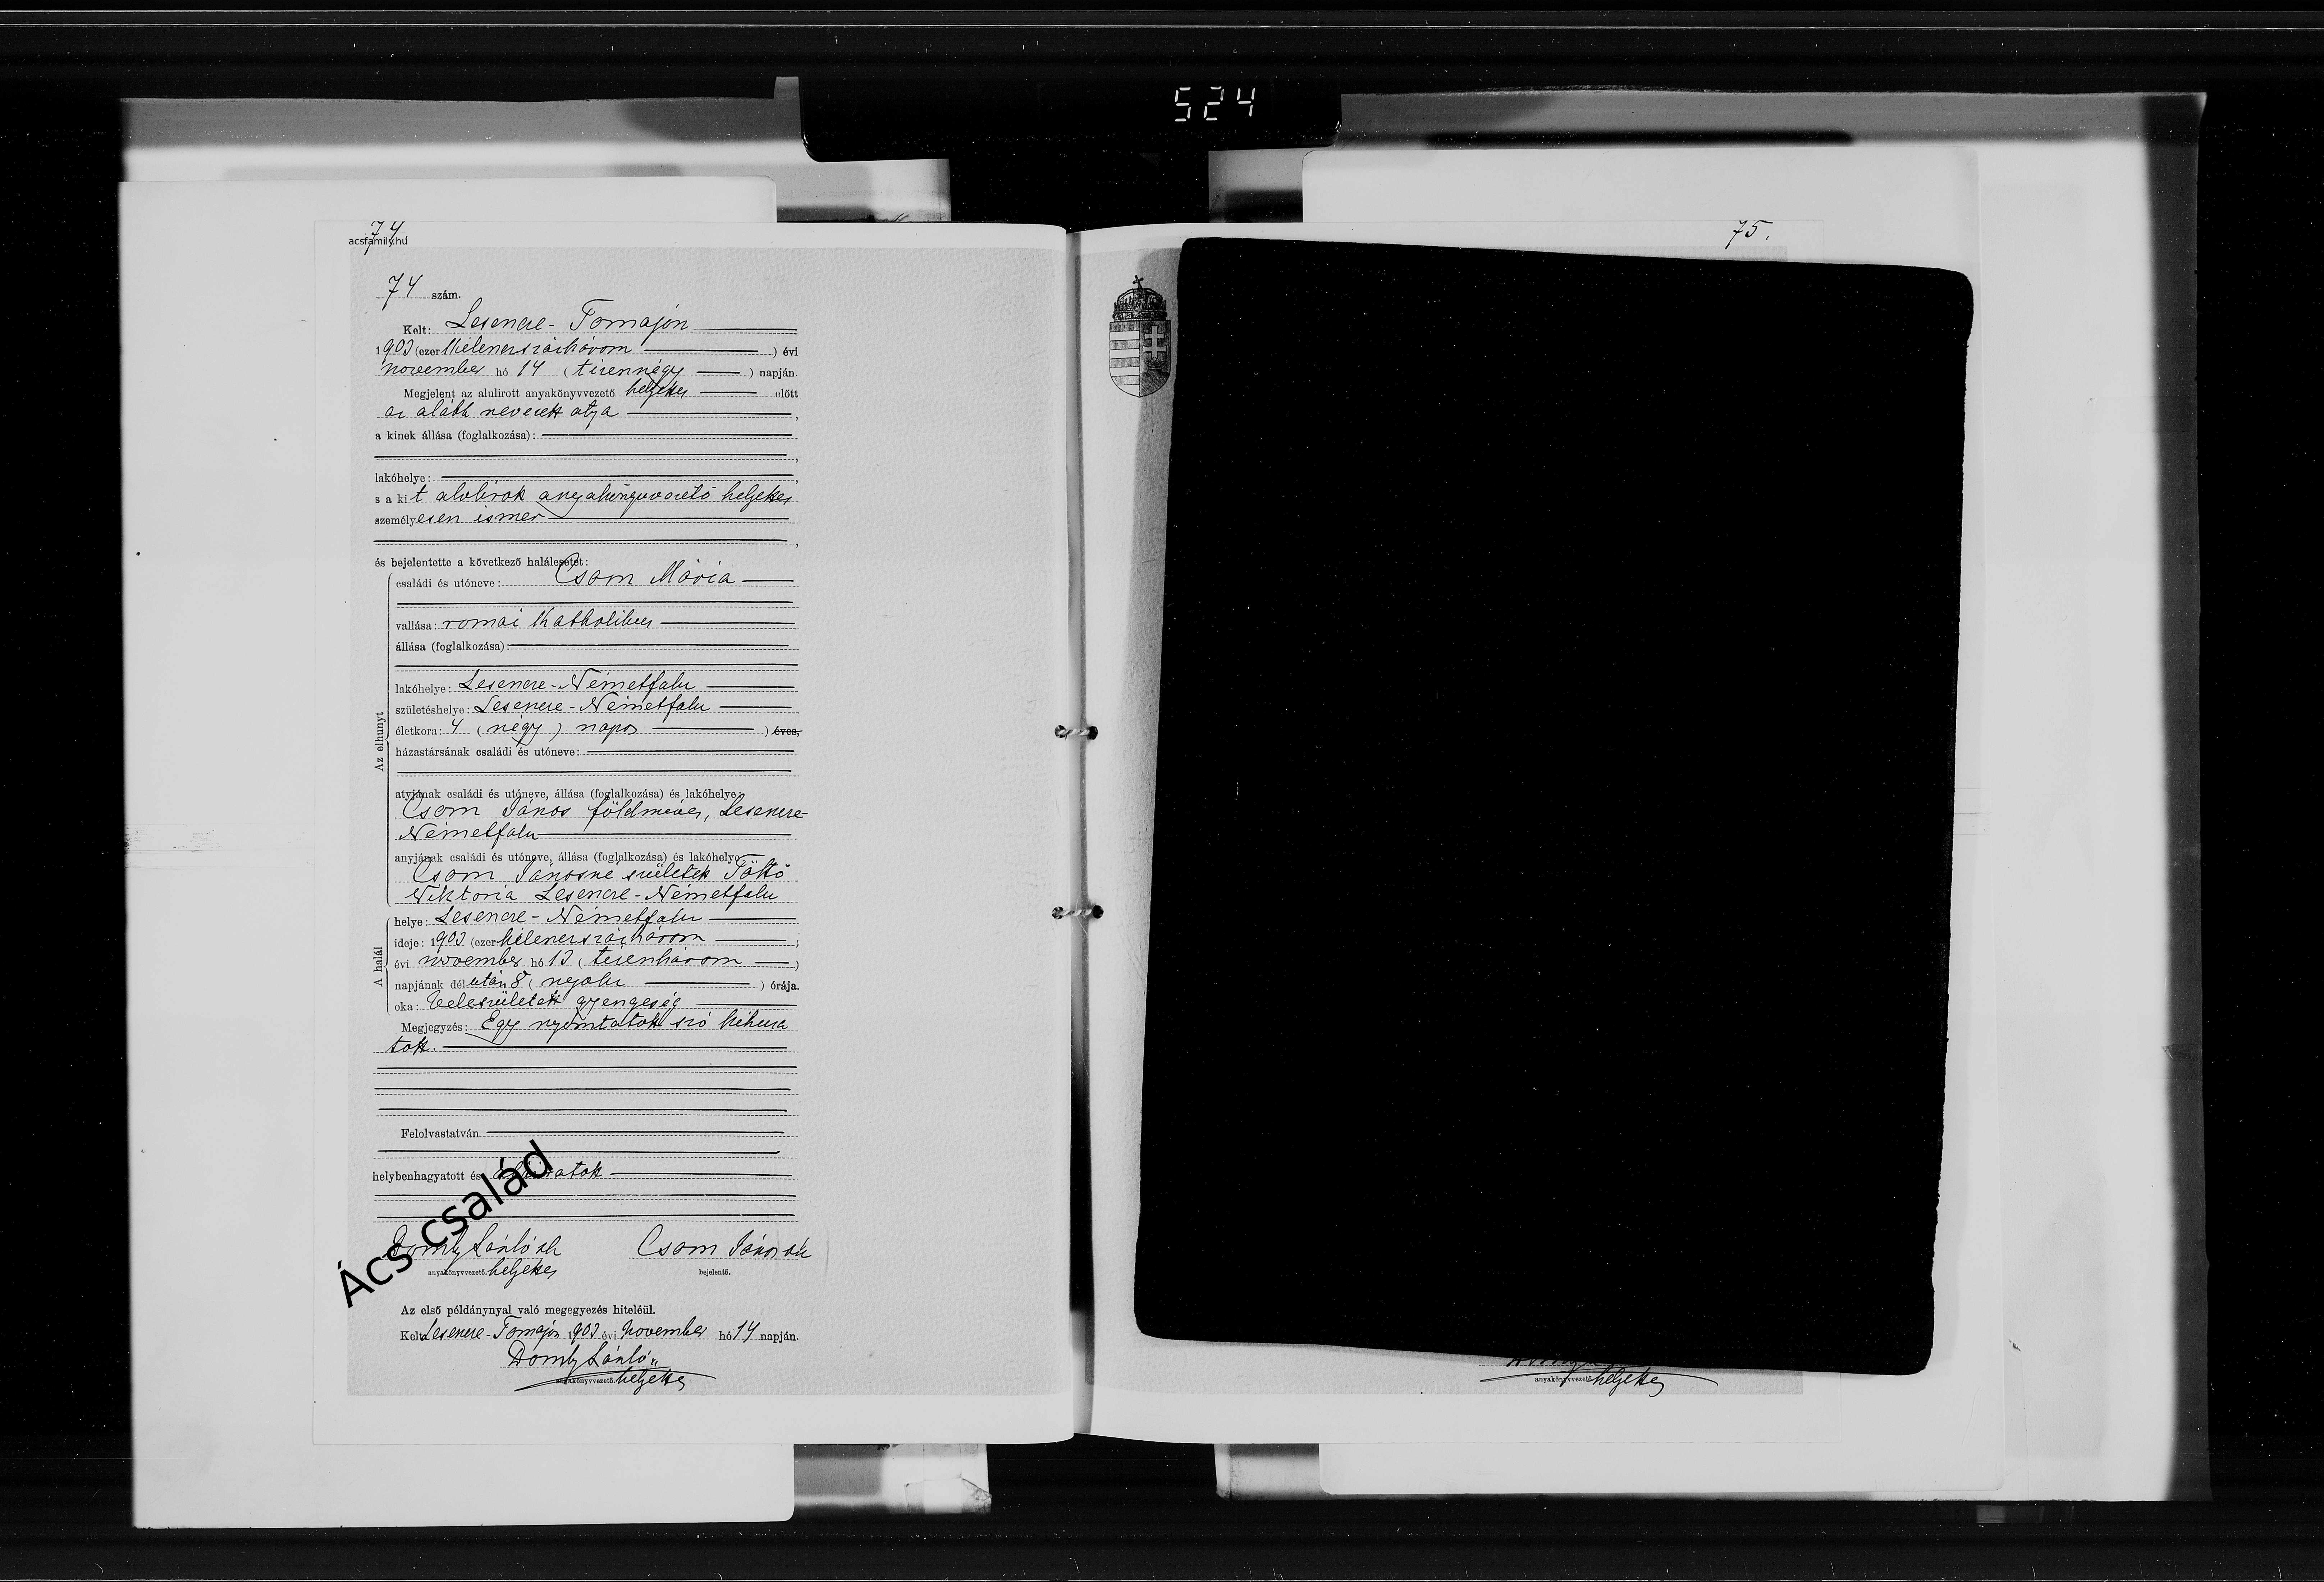 524
74
acsfamily.hu
75.
74 szám.
Kelt: Lesencze-Tomajon
1903 (ezer kilenczszázhárom ) évi
november hó 14 ( tizennégy ) napján.
Megjelent az alulirott anyakönyvvezető helyettes előtt
az alább nevezett atyja ,
a kinek állása (foglalkozása):
,
lakóhelye: ,
s a kit alulirott anyakönyvvezető helyettes
személyesen ismer
,
és bejelentette a következő halálesetet:
Az elhunyt
családi és utóneve: Csom Mária
vallása: római katholikus
állása (foglalkozása):
lakóhelye: Lesencze-Németfalu
születéshelye: Lesencze-Németfalu
életkora: 4 ( négy ) napos ) éves,
házastársának családi és utóneve:
atyjának családi és utóneve, állása (foglalkozása) és lakóhelye:
Csom János földmíves, Lesencze-
Németfalu
anyjának családi és utóneve, állása (foglalkozása) és lakóhelye:
Csom Jánosné született
Viktoria Lesencze-Németfalu
A halál
helye: Lesencze-Németfalu
ideje: 1903. (ezer kilenczszázhárom )
évi november hó 13 ( tizenhárom )
napjának délután 8 ( nyolcz ) órája.
oka: Veleszületett gyengeség
Megjegyzés: Egy nyomtatott szó kihuza
tott.
Felolvastatván
helybenhagyatott és aláiratott
László sk Csom János sk
anyakönyvvezető. helyettes bejelentő.
Ács család
Az első példánynyal való megegyezés hiteléül.
Kelt Lesencze-Tomajon 1903 évi November hó 14 napján.
László
anyakönyvvezető. helyettes
anyakönyvvezető helyettes